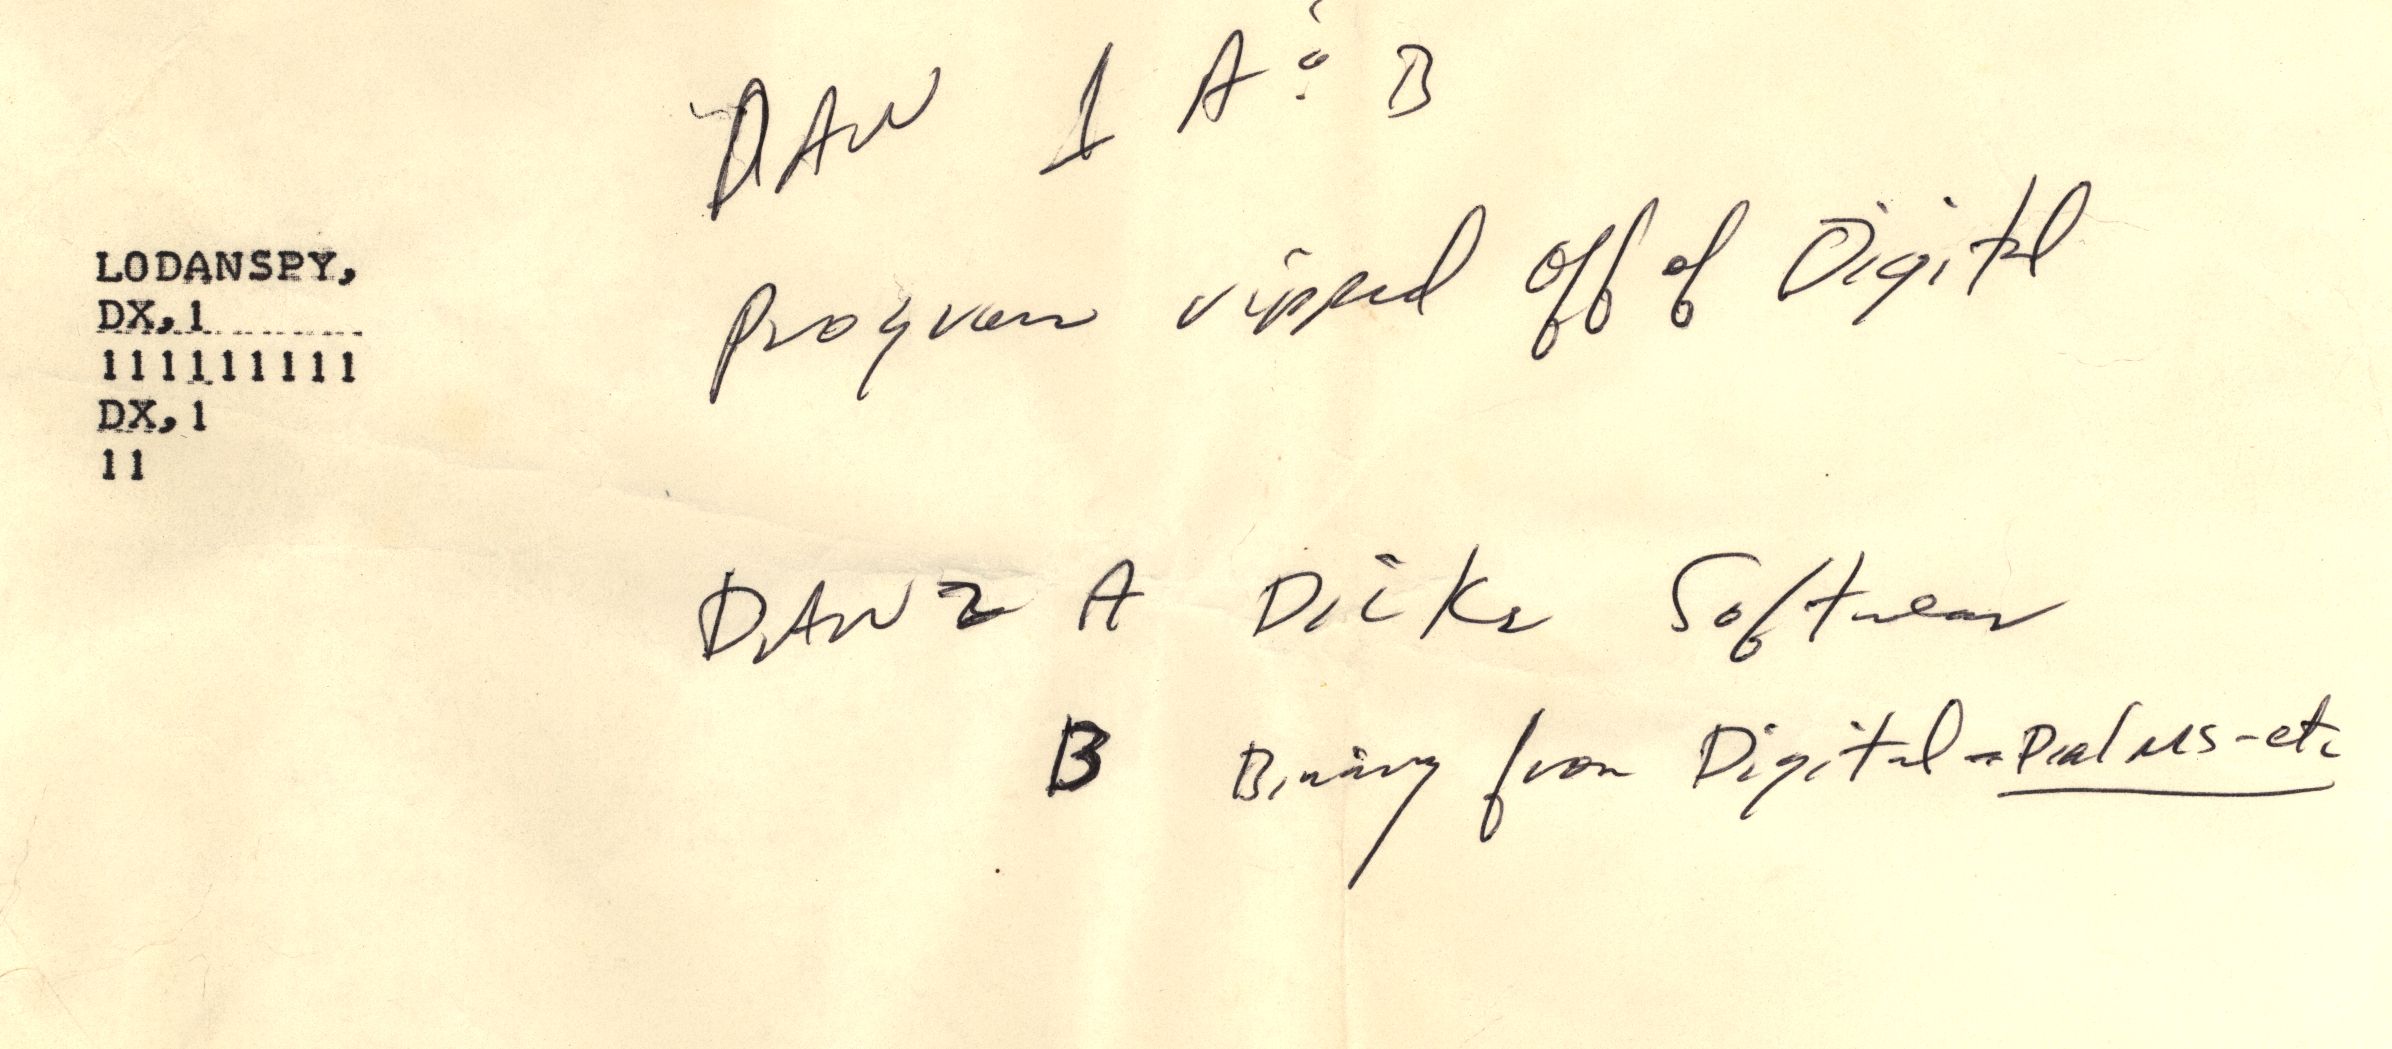 LODANSPY,
DX,1
111111111
DX,1
11
DAN 1 A & B
Program ripped off of Digital
DAN 2 A Dicks Software
B Binary from Digital - Pal MS - etc